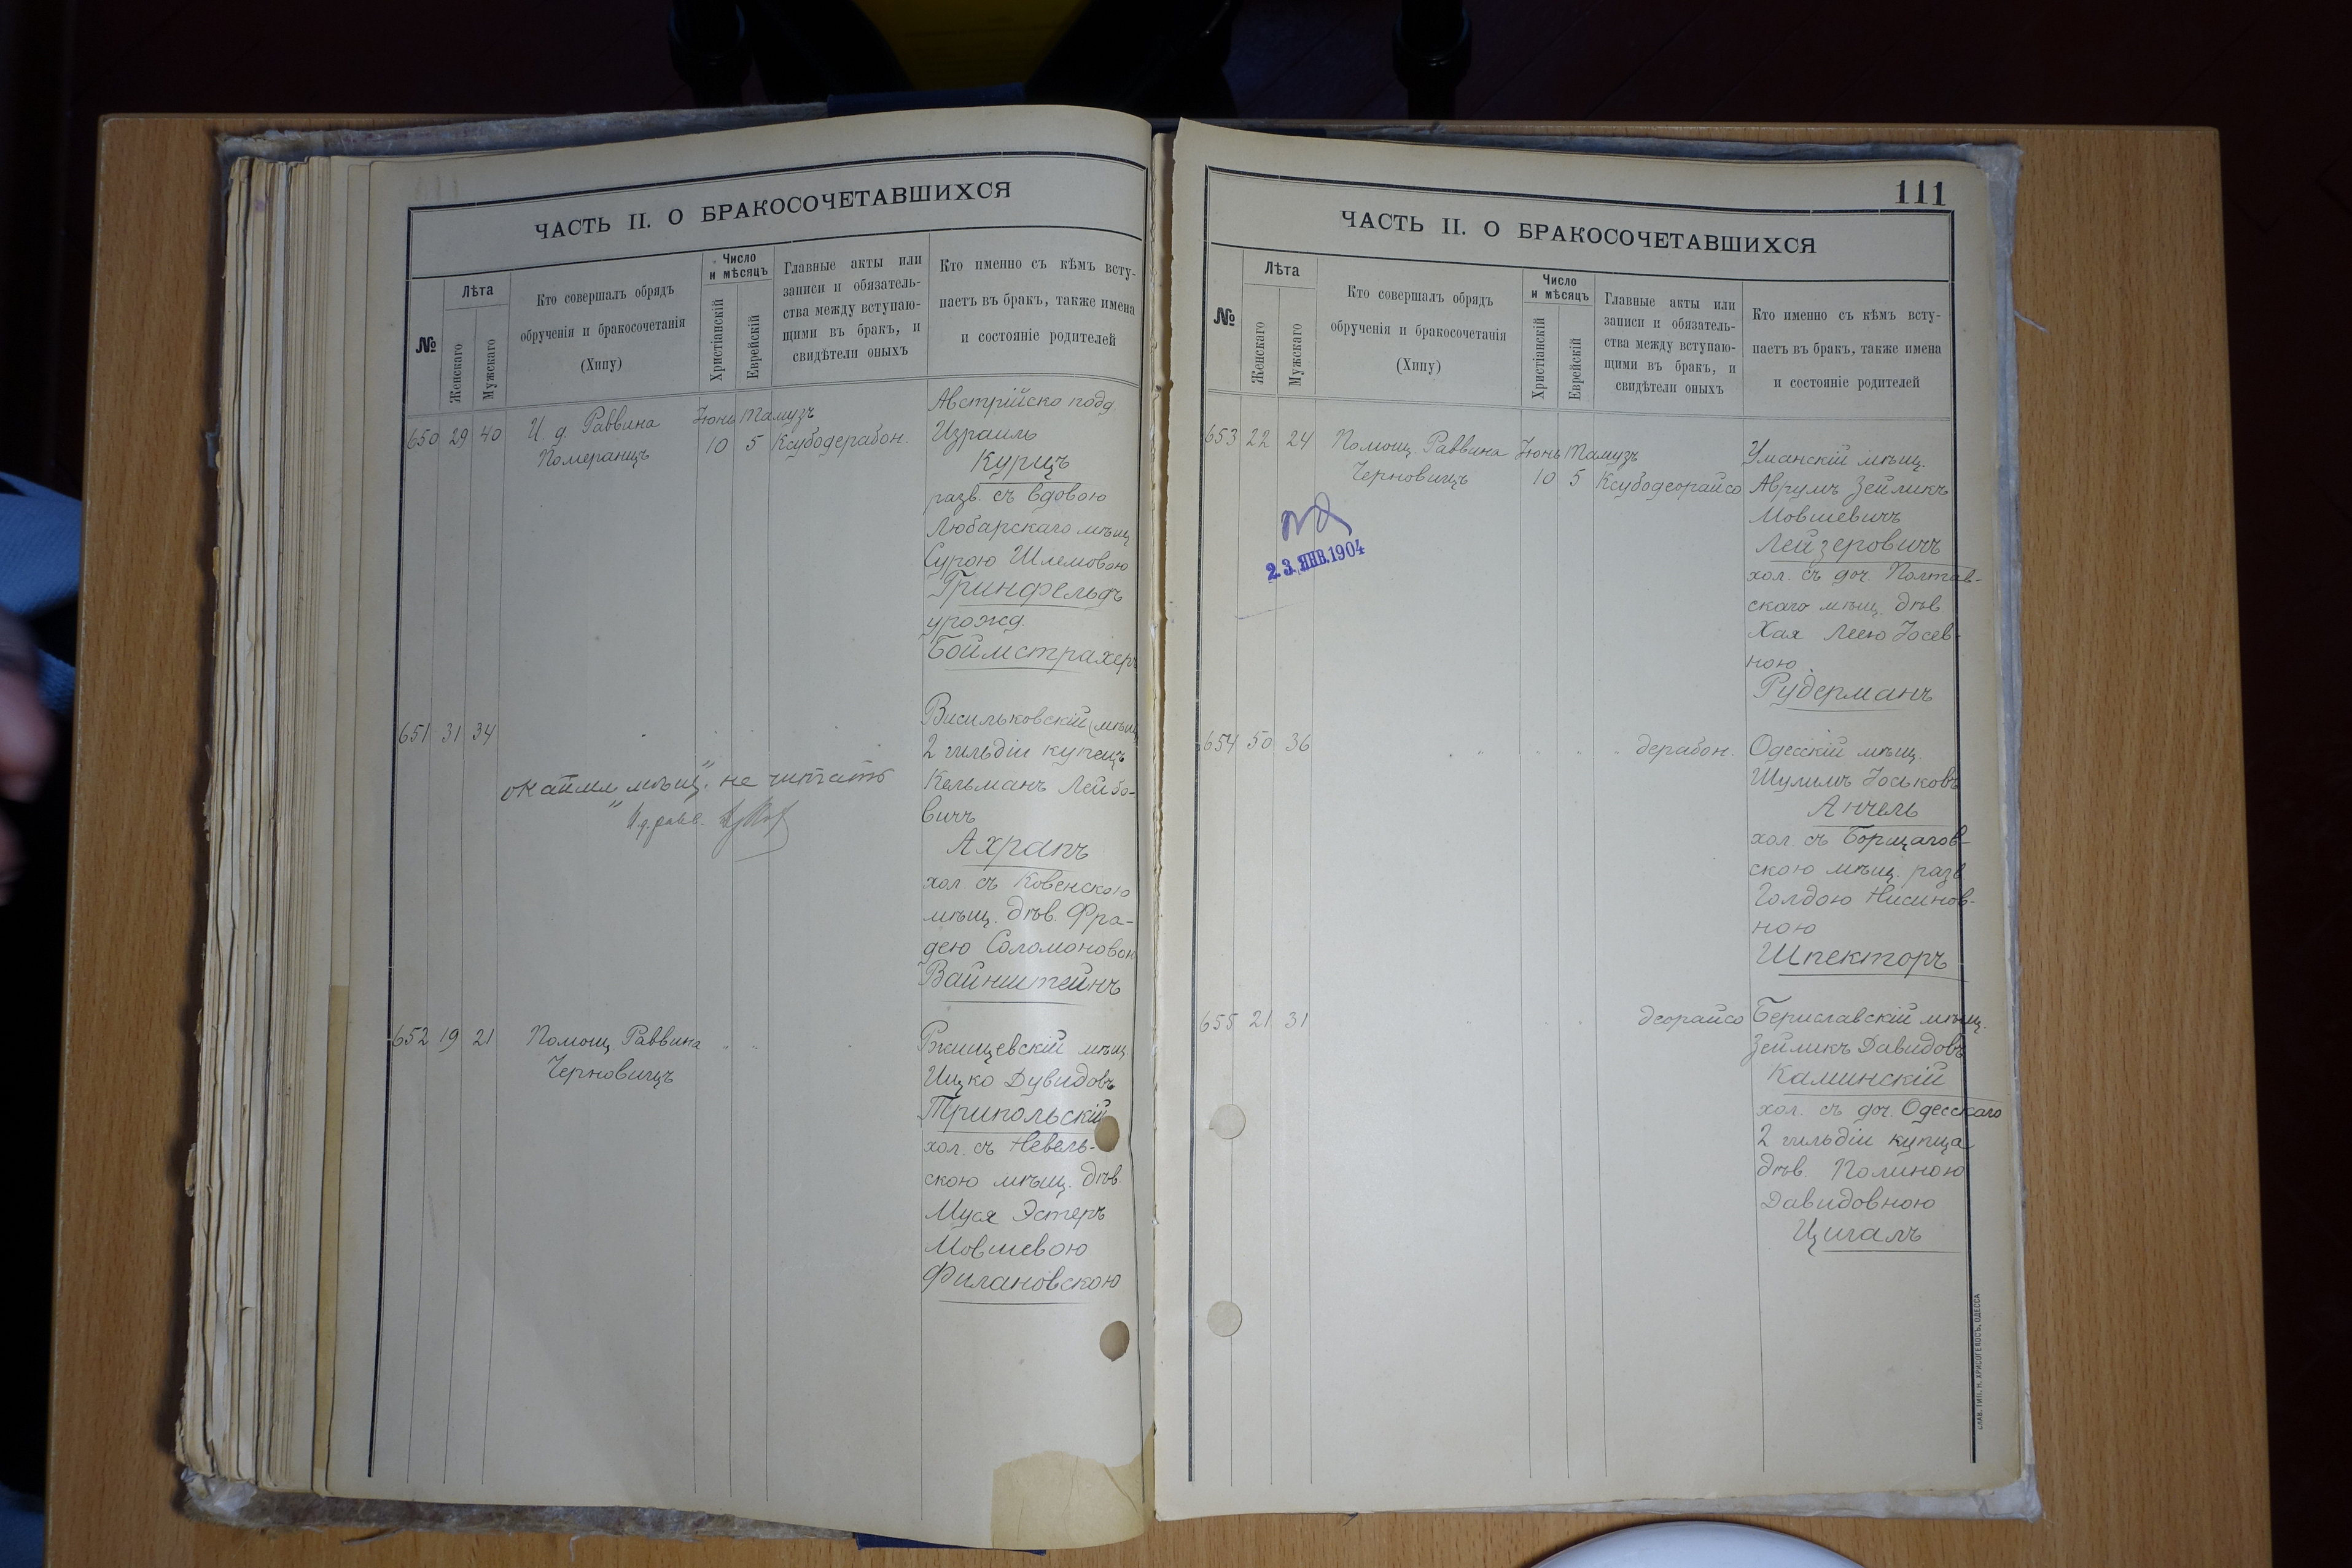 ЧАСТЬ II. О БРАКОСОЧЕТАВШИХСЯ
№
Лѣта
Женскаго
Мужскаго
Кто совершалъ обрядъ
обрученія и бракосочетанія
(Хипу)
Число
и мѣсяцъ
Христіанскій
Еврейскій
Главные акты или
записи и обязатель-
ства между вступаю-
щими въ бракъ, и
свидѣтели оныхъ
Кто именно съ кѣмъ всту-
паетъ въ бракъ, также имена
и состояніе родителей
650 29 40 И. д. Раввина Іюнь Тамузъ
Померанцъ 10 5 Ксубодерабон.
Австрійско подд.
Израиль
Курцъ
разв. съ вдовою
Любарскаго мѣщ.
Сурою Шлемовою
Гринфельдъ
урожд.
Боймстрахеръ
651 31 34
Васильковскій (мѣщ.
2 гильдіи купецъ
Кельманъ Лейбо-
вичъ
Ахрапъ
хол. съ Ковенскою
мѣщ. дѣв. Фра-
дею Соломоновою
Вайнштейнъ
"мѣщ." не читать
И. д. равв.
652 19 21 Помощ. Раввина
Черновицъ
Ржищевскій мѣщ.
Ицко Дувидовъ
Трипольскій
хол. съ Невель-
скою мѣщ. дѣв.
Муся Эстеръ
Мовшевою
Филановскою
111
ЧАСТЬ II. О БРАКОСОЧЕТАВШИХСЯ
№
Лѣта
Женскаго
Мужскаго
Кто совершалъ обрядъ
обрученія и бракосочетанія
(Хипу)
Число
и мѣсяцъ
Христіанскій
Еврейскій
Главные акты или
записи и обязатель-
ства между вступаю-
щими въ бракъ, и
свидѣтели оныхъ
Кто именно съ кѣмъ всту-
паетъ въ бракъ, также имена
и состояніе родителей
653 22 24 Помощ. Раввина Іюнь Тамузъ
Черновицъ 10 5 Ксубодеорайсо
23. ЯНВ. 1904
Уманскій мѣщ.
Аврумъ Зейликъ
Мовшевичъ
Лейзеровичъ
хол. съ доч. Полтав-
скаго мѣщ. дѣв.
Хая Леею Іосев-
ною
Рудерманъ
654 50 36 " " " " дерабон.
Одесскій мѣщ.
Шулимъ Іоськовъ
Анчель
хол. съ Борщагов-
скою мѣщ. разв
Голдою Нисинов-
ною
Шпекторъ
655 21 31 деорайсо
Бериславскій мѣщ.
Зейликъ Давидовъ
Каминскій
хол. съ доч. Одесскаго
2 гильдіи купца
дѣв. Полиною
Давидовною
Цигаль
СКАВ. ТИП. Н. ХРИСОГЕЛОСЪ, ОДЕССА